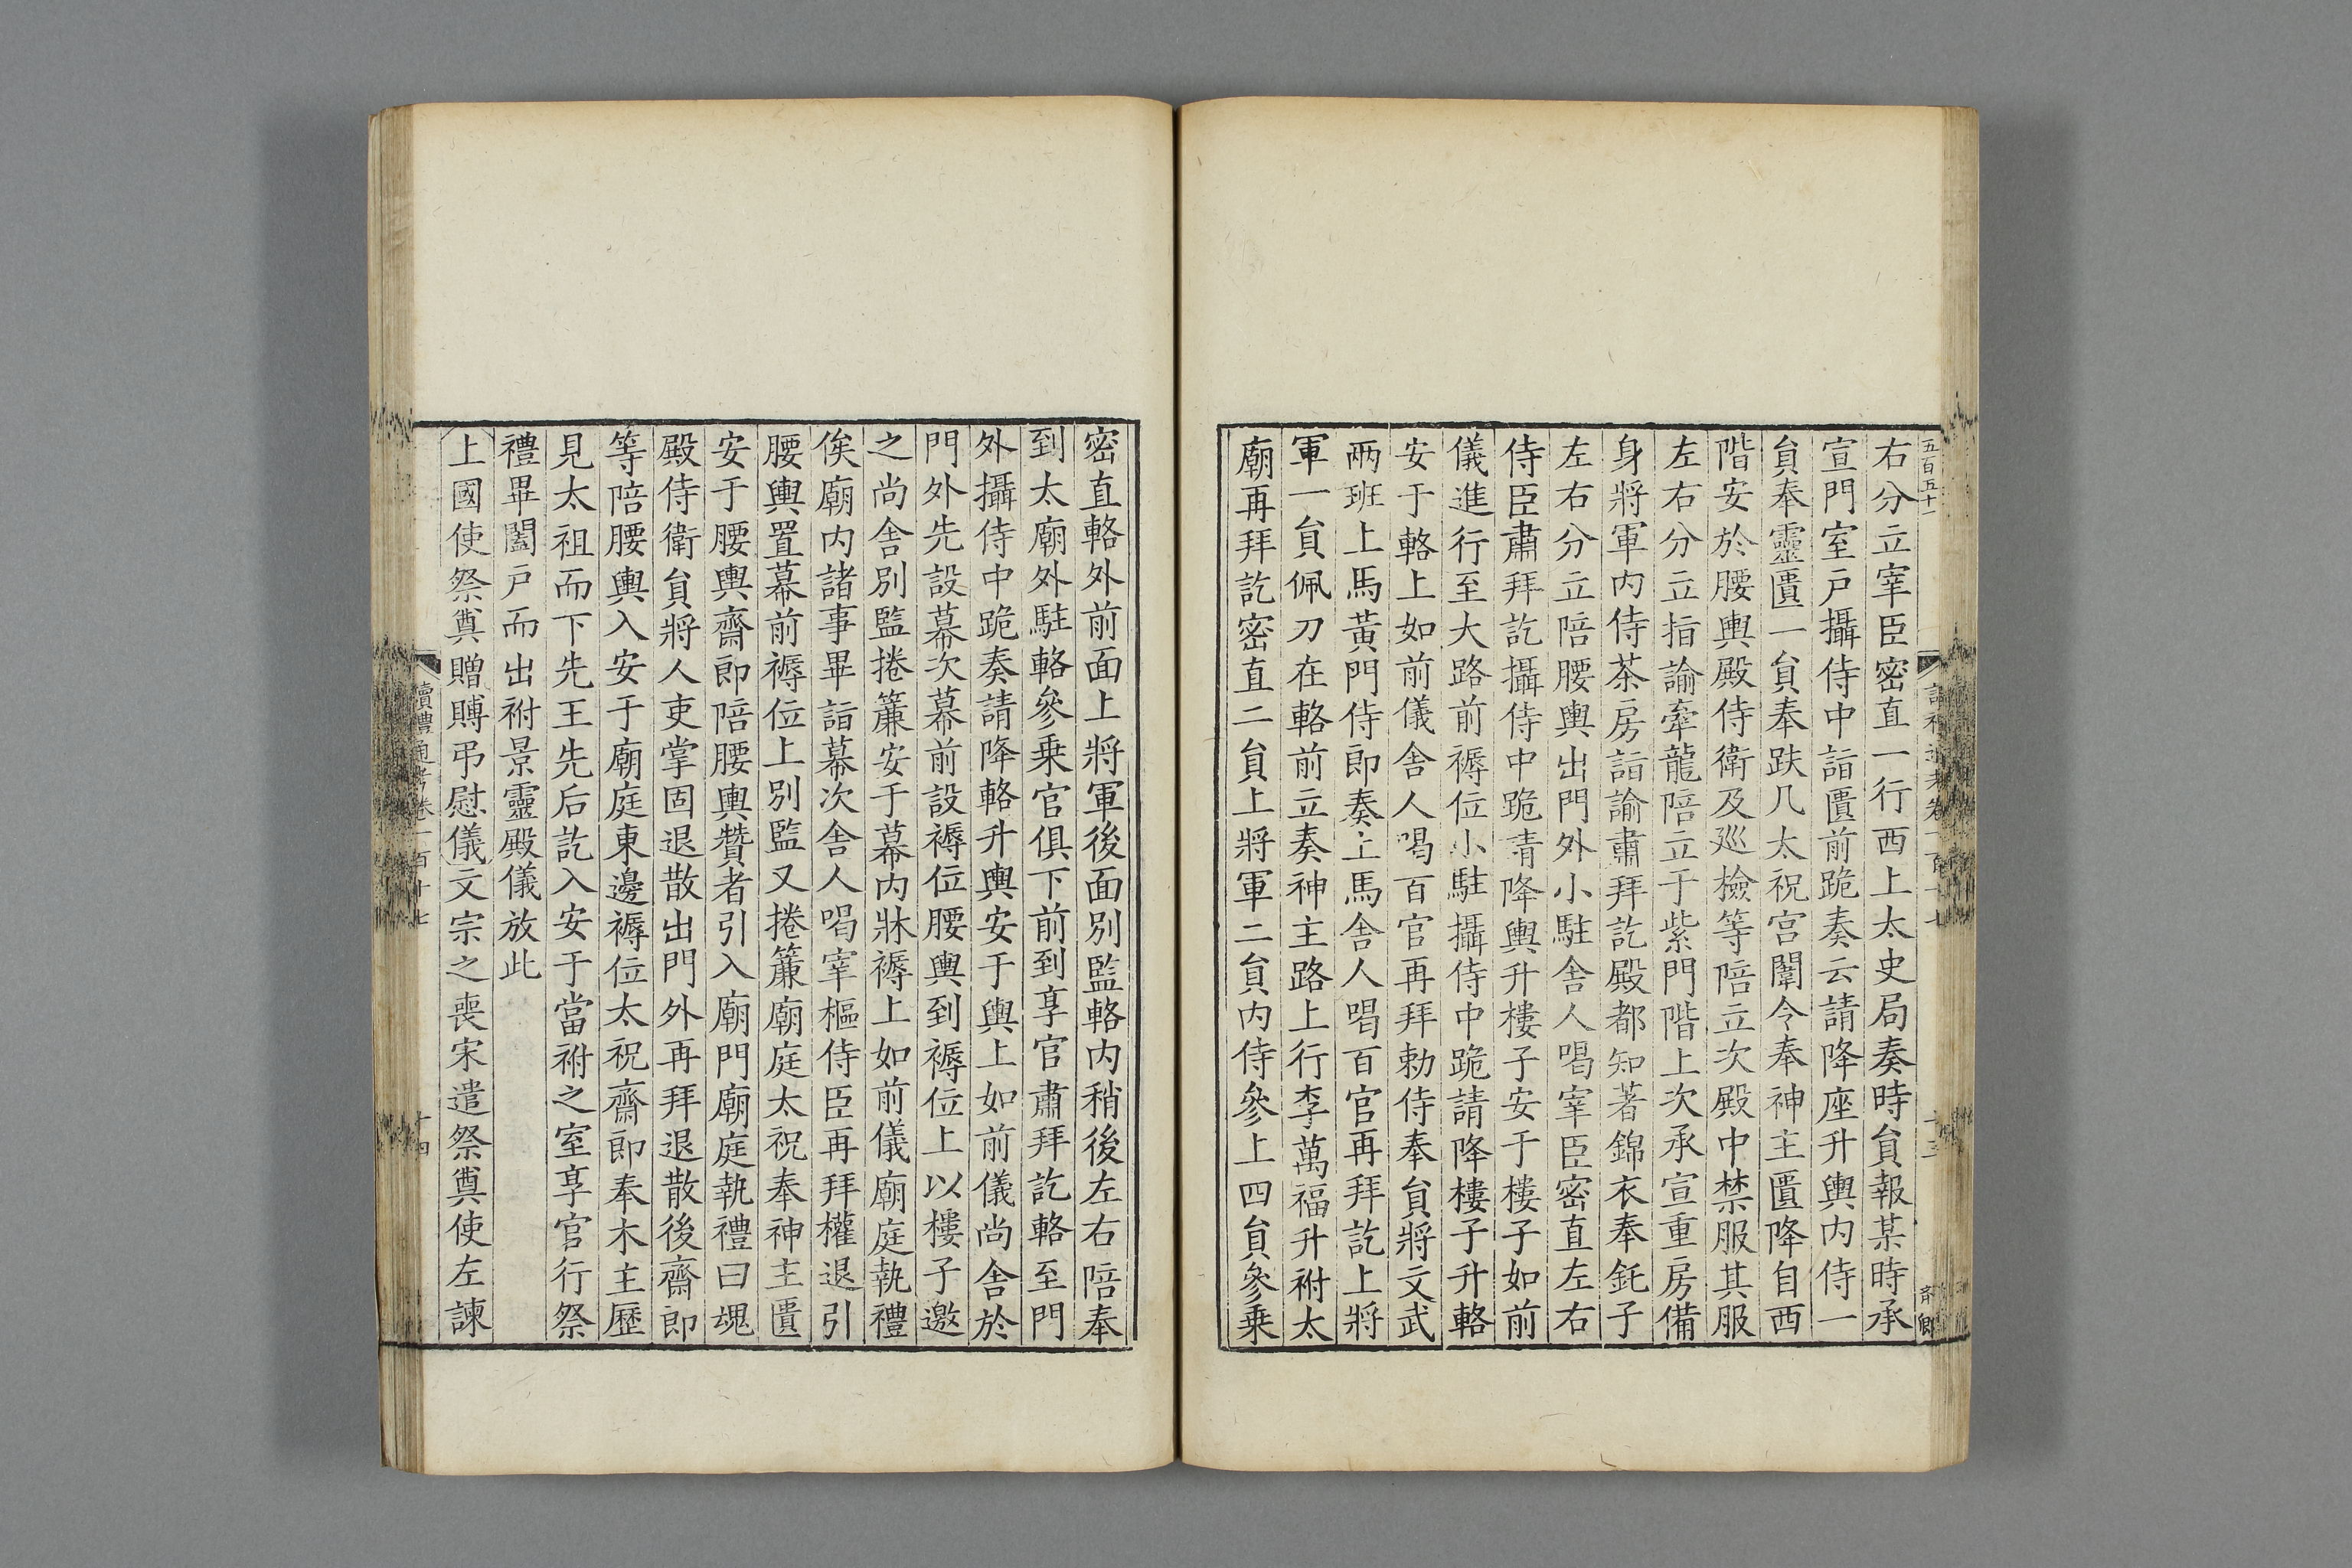 五百五十一
右分立宰臣密直一行西上太史局奏時員報某時承
宣門室戶攝侍中詣匱前跪奏云請降座升輿内侍一
員奉靈匱一員奉趺几太祝宫闈令奉神主匱降自西
階安於腰輿殿侍衛及廵檢等陪立次殿中禁服其服
左右分立指諭牽龍陪立于紫門階上次承宣重房備
身將軍内侍茶房詣諭肅拜訖殿都知著錦衣奉𨥛子
左右分立陪腰輿出門外小駐舍人喝宰臣密直左右
侍臣肅拜訖攝侍中跪請降輿升樓子安于樓子如前
儀進行至大路前褥位小駐攝侍中跪請降樓子升輅
安于輅上如前儀舍人喝百官再拜勅侍奉員將文武
兩班上馬黃門侍郎奏上馬舍人喝百官再拜訖上將
軍一員佩刀在輅前立奏神主路上行李萬福升祔太
廟再拜訖密直二員上將軍二員内侍參上四員參乗
密直輅外前面上將軍後面別監輅内稍後左右陪奉
到太廟外駐輅參乗官俱下前到享官肅拜訖輅至門
外攝侍中跪奏請降輅升輿安于輿上如前儀尚舍於
門外先設幕次幕前設褥位腰輿到褥位上以樓子邀
之尚舍別監捲簾安于幕内牀褥上如前儀廟庭執禮
俟廟内諸事畢詣幕次舍人喝宰樞侍臣再拜權退引
腰輿置幕前褥位上別監又捲簾廟庭太祝奉神主匱
安于腰輿齋郎陪腰輿贊者引入廟門廟庭執禮曰魂
殿侍衛員將人吏掌固退散出門外再拜退散後齋郎
等陪腰輿入安于廟庭東邊褥位太祝齋郎奉木主歷
見太祖而下先王先后訖入安于當祔之室享官行祭
禮畢闔戶而出祔景靈殿儀放此
上國使祭奠贈賻弔慰儀文宗之喪宋遣祭奠使左諫
讀禮通考卷一百十七
十四